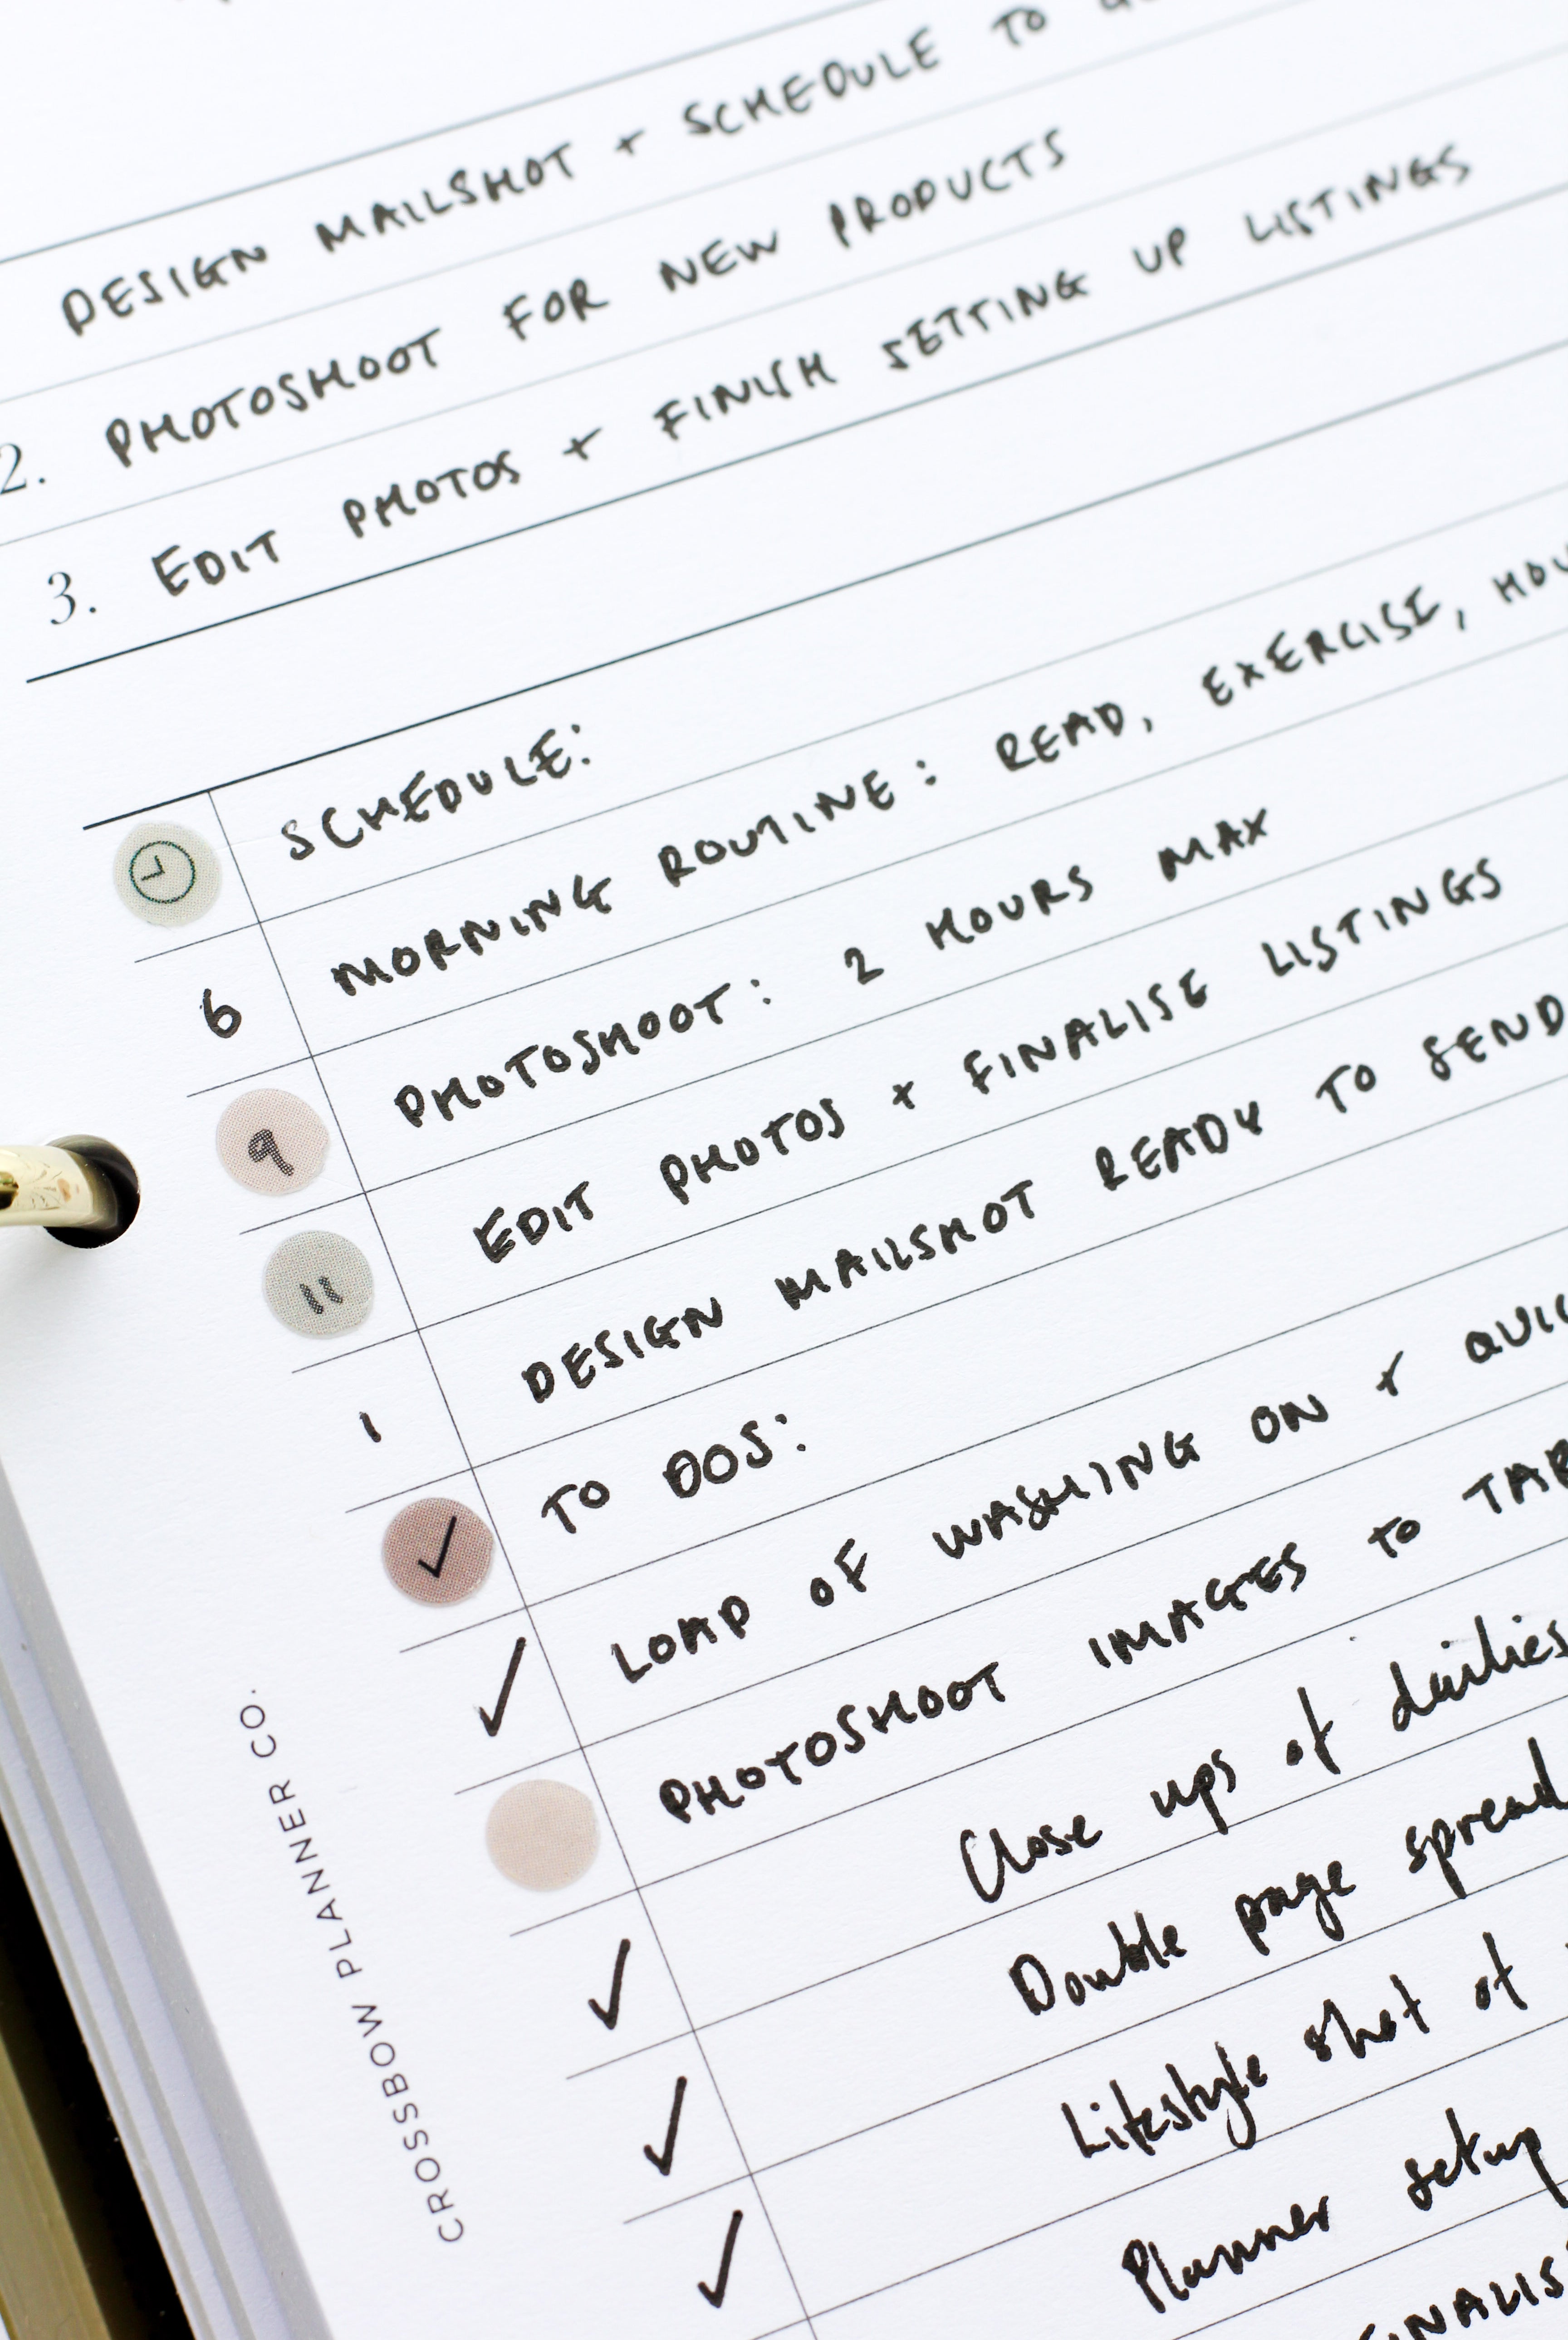 DESIGN MAILSHOT + SCHEDULE TO
2. PHOTOSHOOT FOR NEW PRODUCTS
3. EDIT PHOTOS + FINISH SETTING UP LISTINGS
SCHEDULE:
6 MORNING ROUTINE: READ, EXERCISE,
9 PHOTOSHOOT: 2 HOURS MAX
11 EDIT PHOTOS + FINALISE LISTINGS
1 DESIGN MAILSHOT READY TO SEND
TO DOS:
✓ LOAD OF WASHING ON +
PHOTOSHOOT IMAGES TO
✓ Close ups of dailies
✓ Double page spread
✓ Lifestyle shot of
Planner setup
CROSSBOW PLANNER CO.